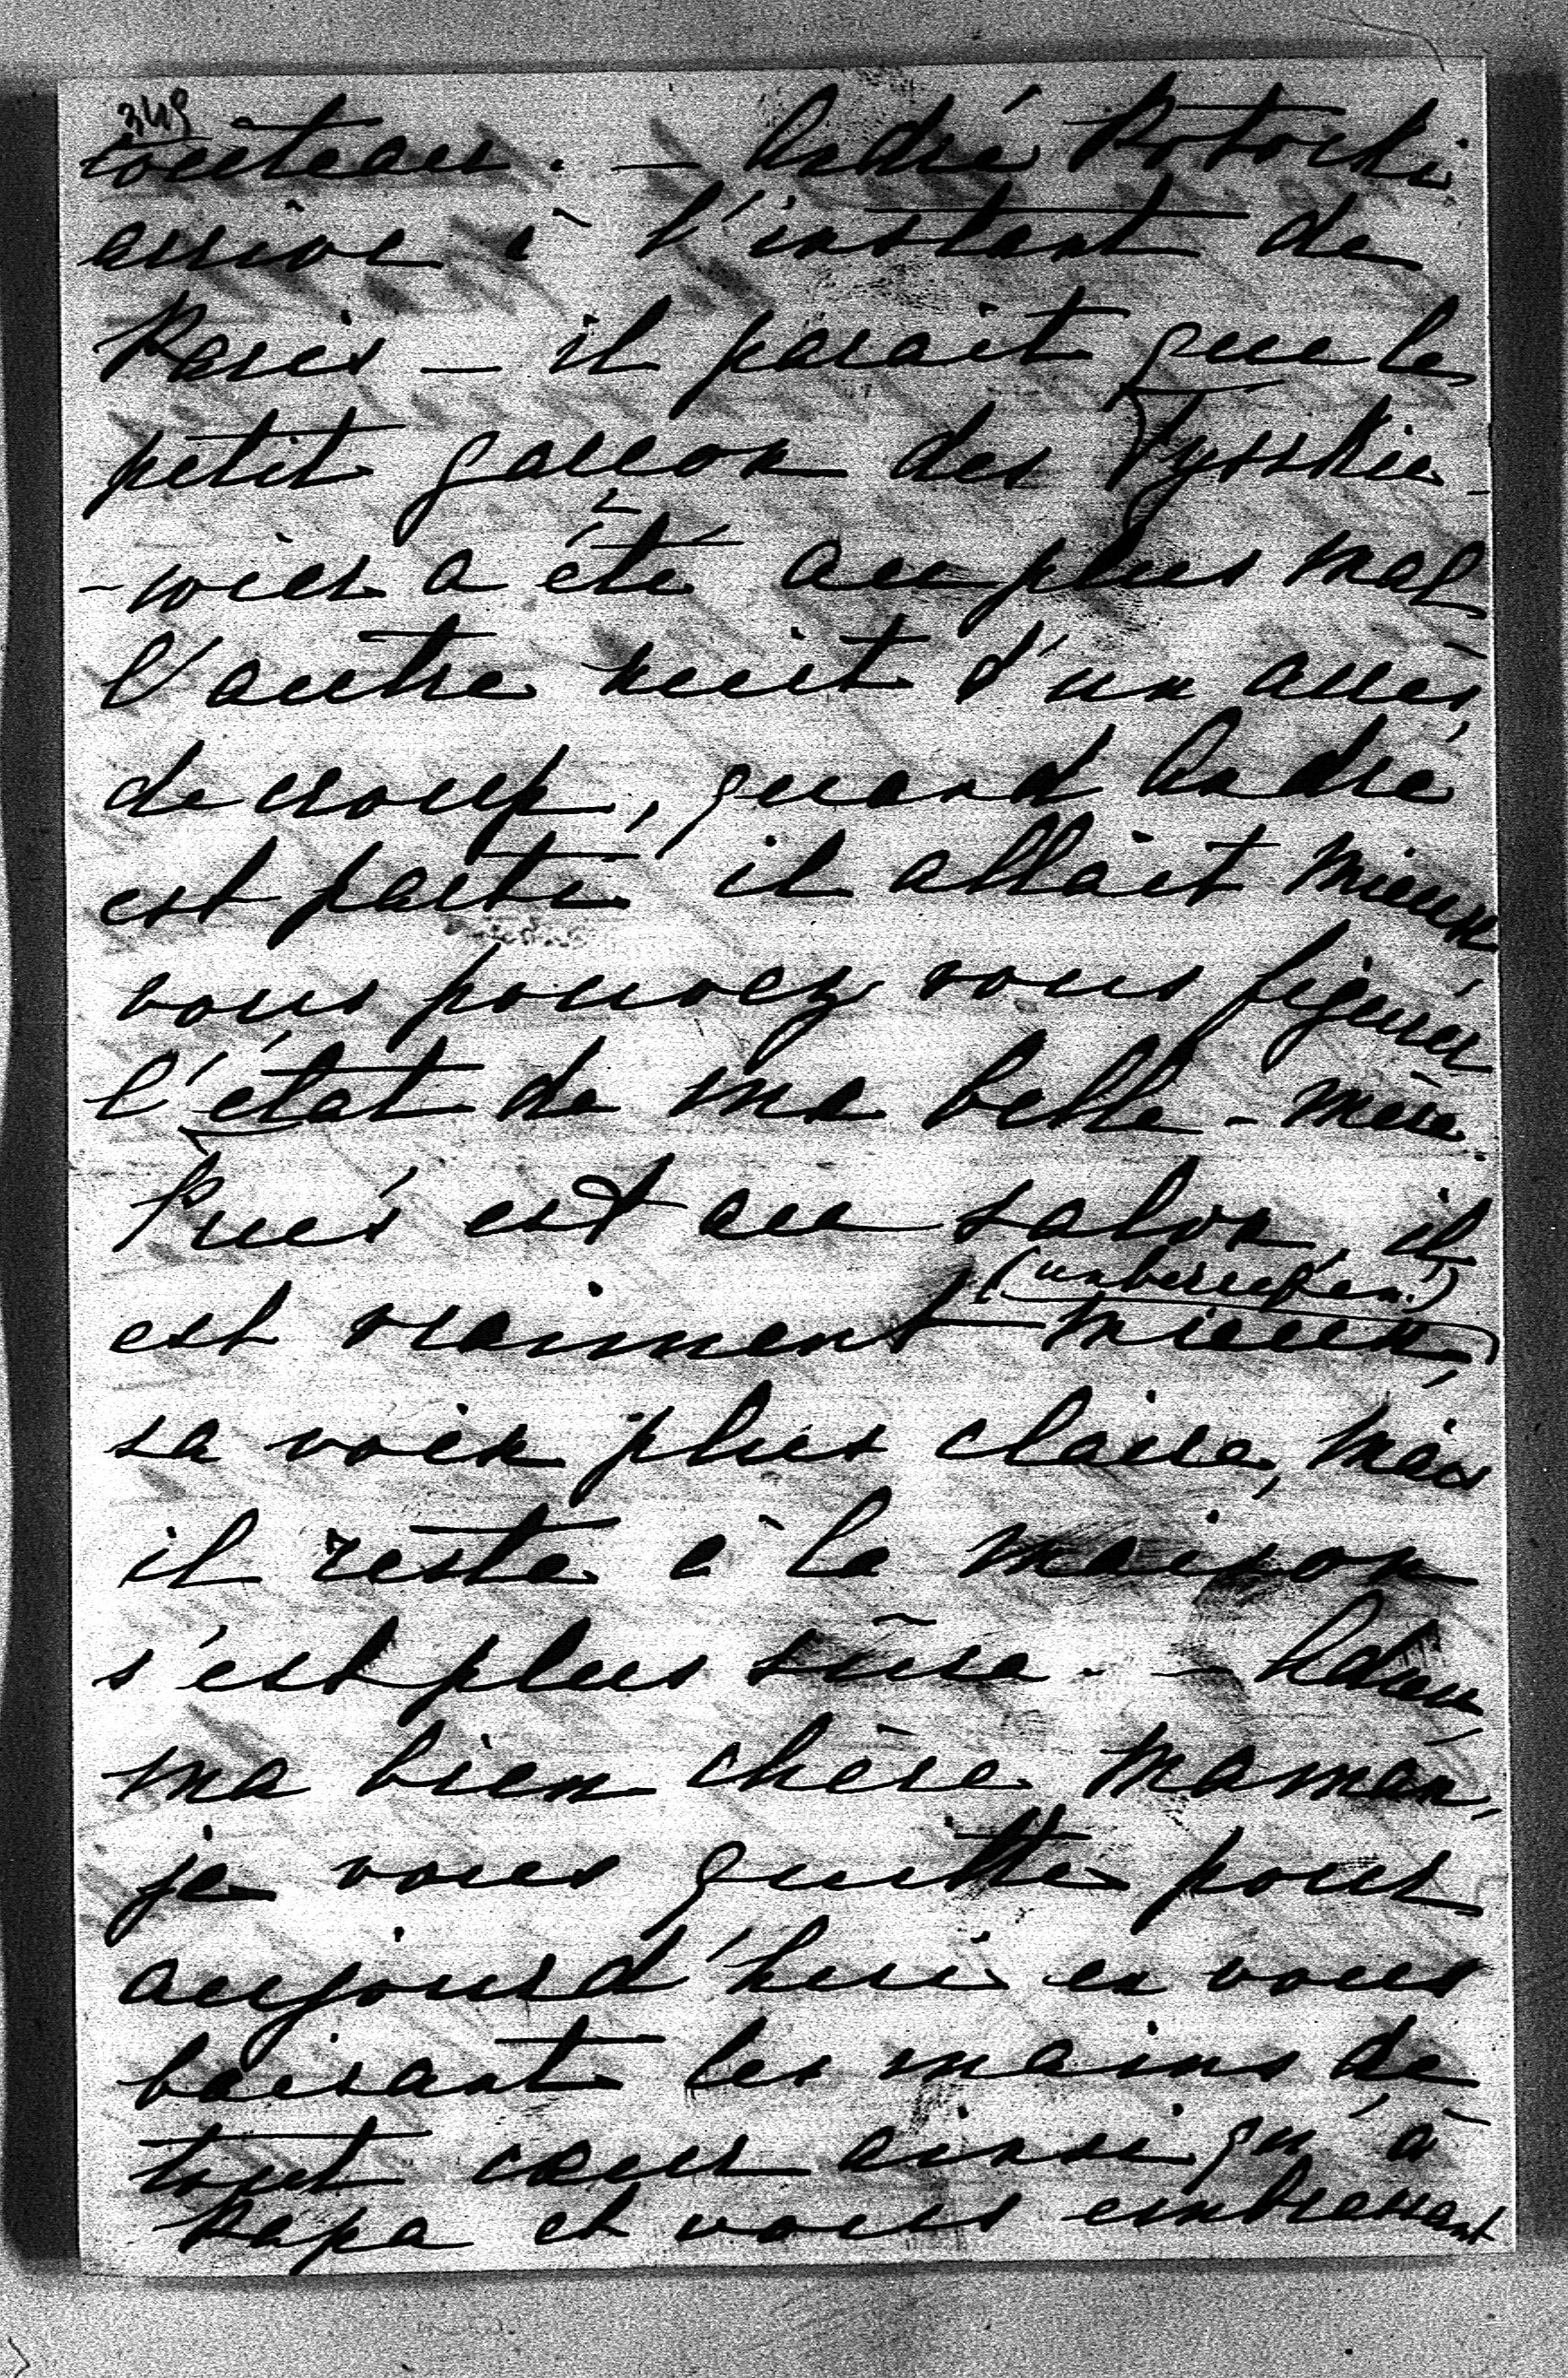 349
couteau. — André Potocki
arrive à l'instant de
Paris — il parait que le
petit garçon des Tysskie-
-wicz a été au plus mal
l'autre nuit d'un accès
de croup, quand André
est parti, il allait mieux,
vous pouvez vous figurer
l'état de ma belle-mère.
est au salon, il
(unberufen!)
est vraiment mieux,
sa voix plus claire, mais
il reste à la maison
s'est plus sûre. — Adieu,
ma bien chère Maman,
je vous quitte pour
aujourd'hui en vous
baisant les mains de
tout cœur ainsi qu'à
Papa et vous embrassant